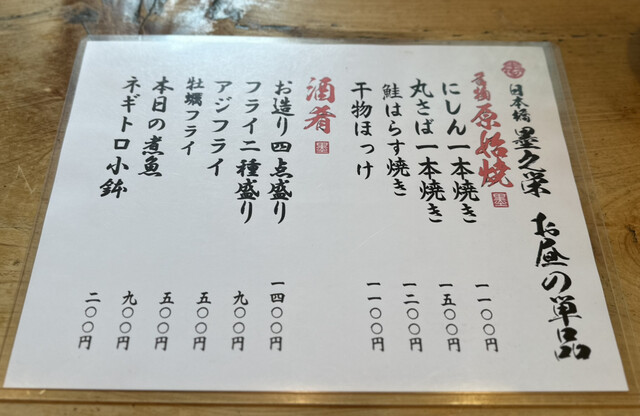 日本橋 墨之栄 お昼の単品
名物 原始焼
にしん一本焼き 一一〇〇円
丸さば一本焼き 一五〇〇円
鮭はらす焼き 一二〇〇円
干物ほっけ 一一〇〇円
酒肴
お造り四点盛り 一四〇〇円
フライ二種盛り 九〇〇円
アジフライ 五〇〇円
牡蠣フライ 五〇〇円
本日の煮魚 九〇〇円
ネギトロ小鉢 二〇〇円